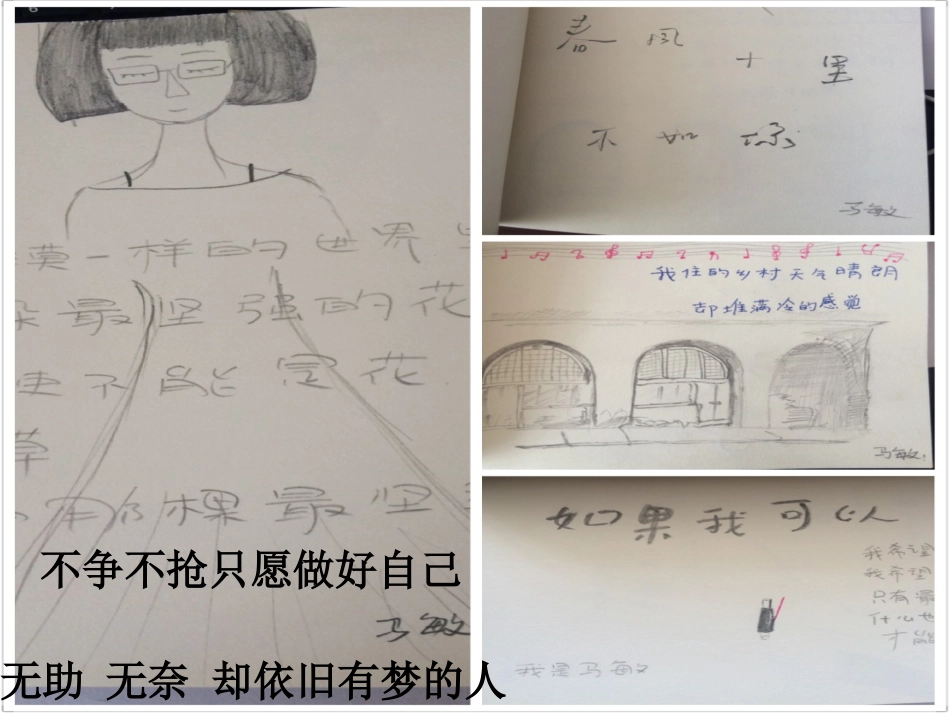 漠一样的世界里
朵最坚强的花
使不能
花
草
棵最坚
马敏
不争不抢只愿做好自己
无助 无奈 却依旧有梦的人
春风十里
不如
马敏
我住的乡村天气晴朗
却堆满冷的感觉
马敏
如果我可以
我希望
我希望
只有最
什么也
才能
我是马敏